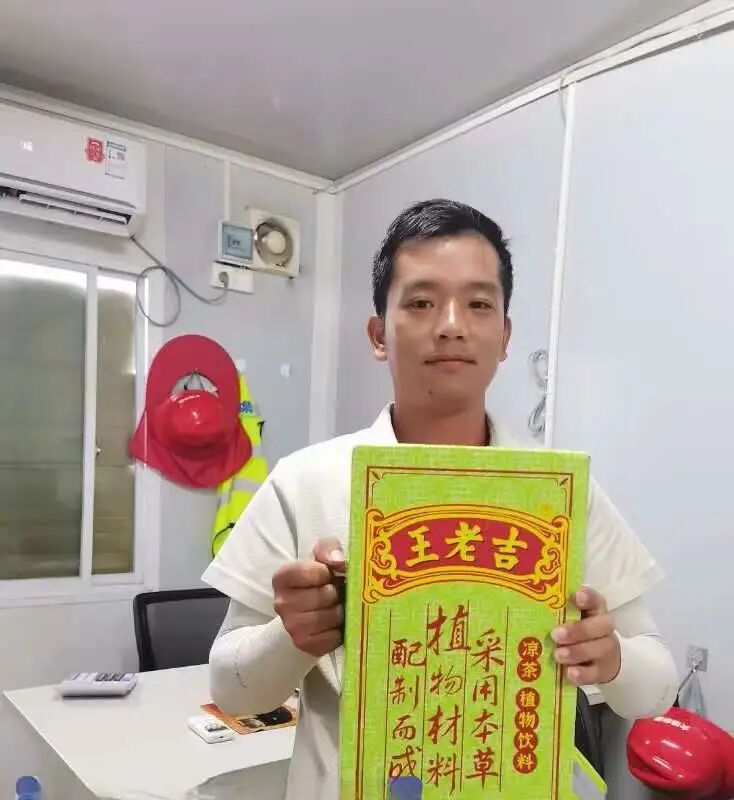 王老吉
凉茶
植物饮料
采用本草
植物材料
配制而成